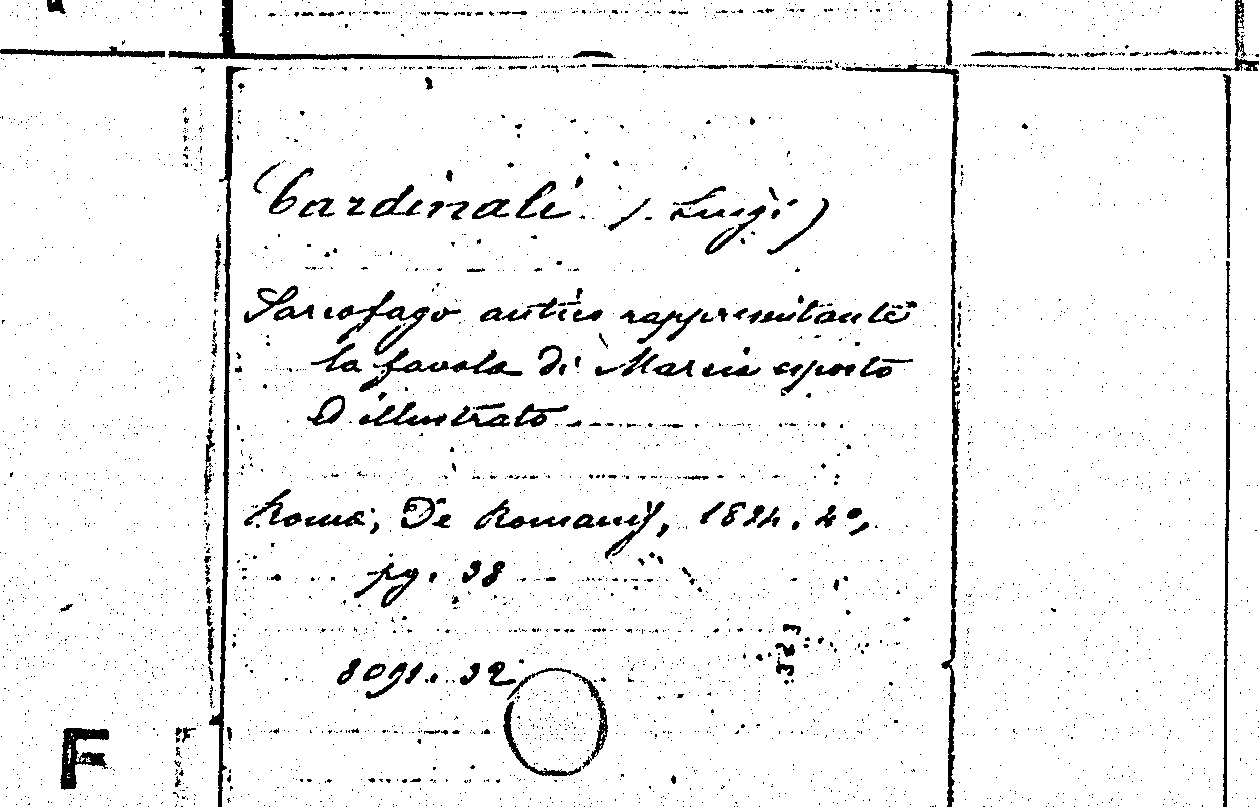 Cardinali (Luigi)
Sarcofago antico rappresentante
la favola di Marsia esposto
ed illustrato
Roma, De Romanis, 1824. 4°,
pg. 38
8091. 32
323
F